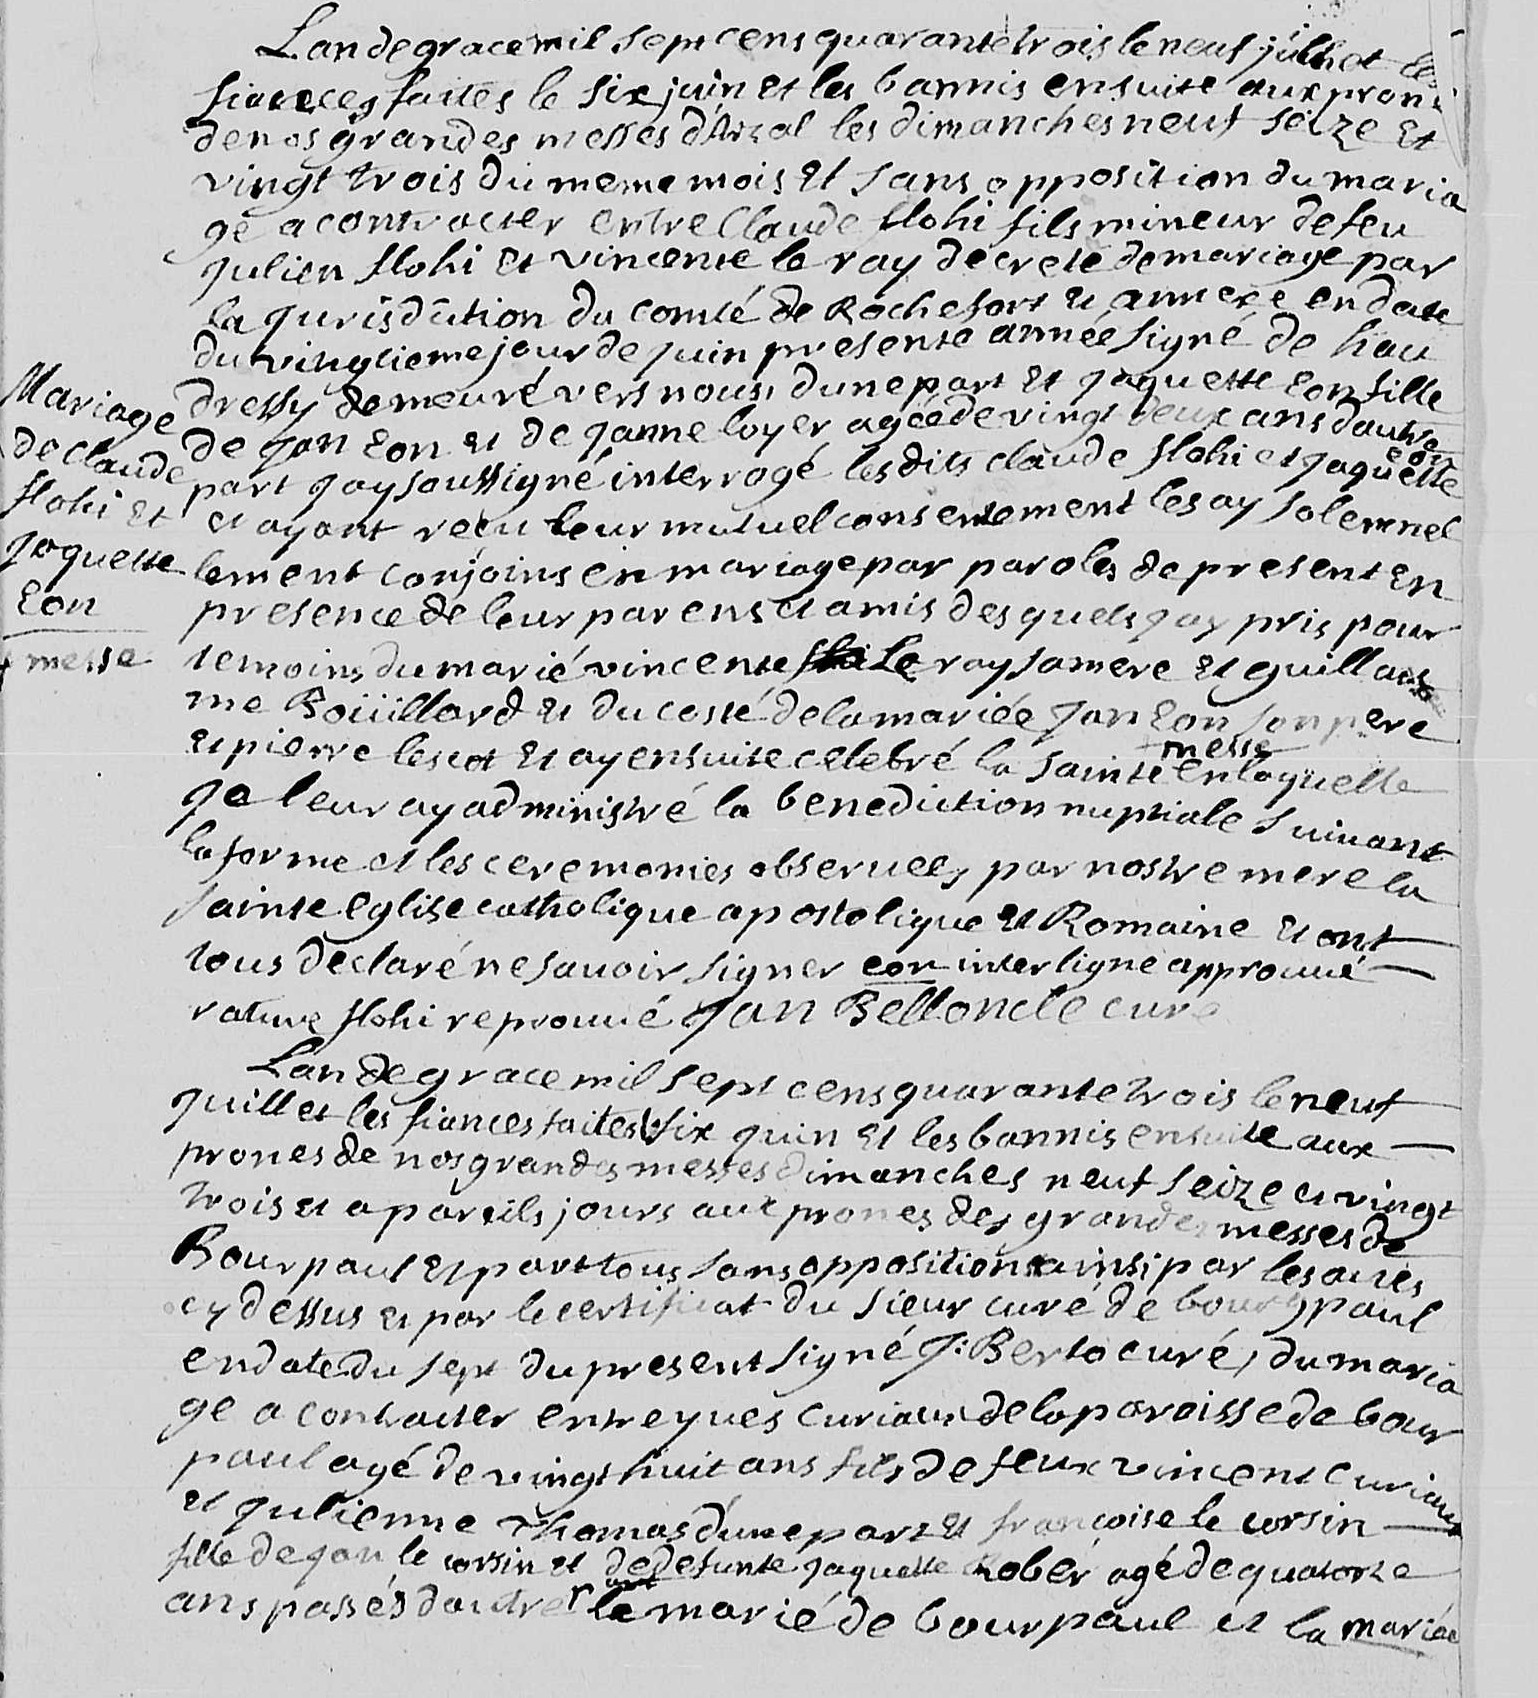 Lan de grace mil sept cens quarante trois le neuf juilhet les
fiances faites le six juin et les bannis ensuite aux pron
de nos grandes messes dArzal les dimanches neuf seize et
vingt trois du meme mois et sans opposition du maria
ge a contracter entre Claude flohi fils mineur de feu
julien flohi et vincente le ray decreté de mariage par
la jurisdiction du comté de Rochefort et annexe en date
du vingtieme jour de juin presente année signé de hau
dressy demeuré vers nous, dune part et jaquette Eon fille
de jan Eon et de janne loyer agée de vingt deux ans dautre
eon
part jay soussigné interrogé les dits claude flohi et jaquette
et ayant reçu leur mutuel consentement les ay solemnel
lement conjoins en mariage par paroles de present en
presence de leur parens et amis des quels jay pris pour
temoins du marié vincente le ray sa mere et guillau
me Boüillard et du costé de la mariée jan Eon son pere
et pierre lescot et ay ensuite celebré la sainte messe en laquelle
je leur ay administré la benediction nuptiale suivant
la forme et les ceremonies observees par nostre mere la
sainte eglise catholique apostolique et Romaine et ont
tous declaré ne savoir signer eon interligne approuvé
rature flohi reprouvé jan Belloncle curé
Mariage
de Claude
flohi et
jaquette
Eon
messe
Lan de grace mil sept cens quarante trois le neuf
juillet les fiances faites le six juin et les bannis ensuite aux
prones de nos grandes messes dimanches neuf seize et vingt
trois et a pareils jours aux prones des grandes messes de
Bourpaul et partout sans opposition ainsi par les actes
cy dessus et par le certificat du sieur curé de bourgpaul
en date du sept du present signé J: Berto curé, du maria
ge a contracter entre yves Curiaux de la paroisse de bour
paul agé de vingt huit ans fils de feux vincent Curiaux
et julienne Thomas dune part et francoise le corsin
fille de jan le corsin et de defunte jaquette Rober agé de quatorze
ans passés dautre part le marié de bourpaul et la mariée